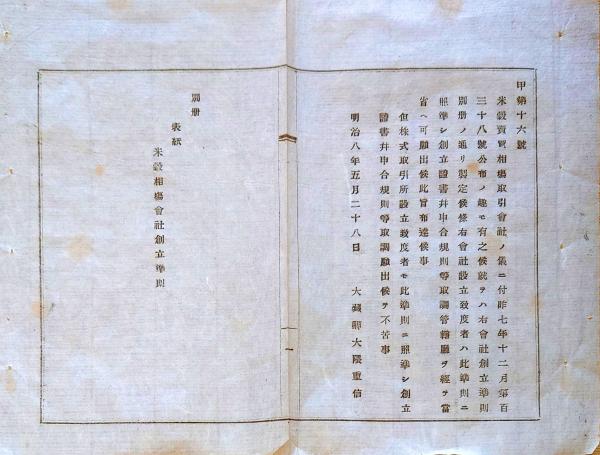 甲第十六號
米穀賣買相場取引會社ノ儀ニ付昨七年十二月第百
三十八號公布ノ趣モ有之候就テハ右會社創立準則
別冊ノ通リ製定候條右會社設立致度者ハ此準則ニ
照準シ創立證書幷申合規則等取調管轄廳ヲ經テ當
省ヘ可願出候此旨布達候事
但株式取引所設立致度者モ此準則ニ照準シ創立
證書幷申合規則等取調願出候テ不苦事
明治八年五月二十八日
大藏卿大隈重信
別冊
表紙
米穀相場會社創立準則
一